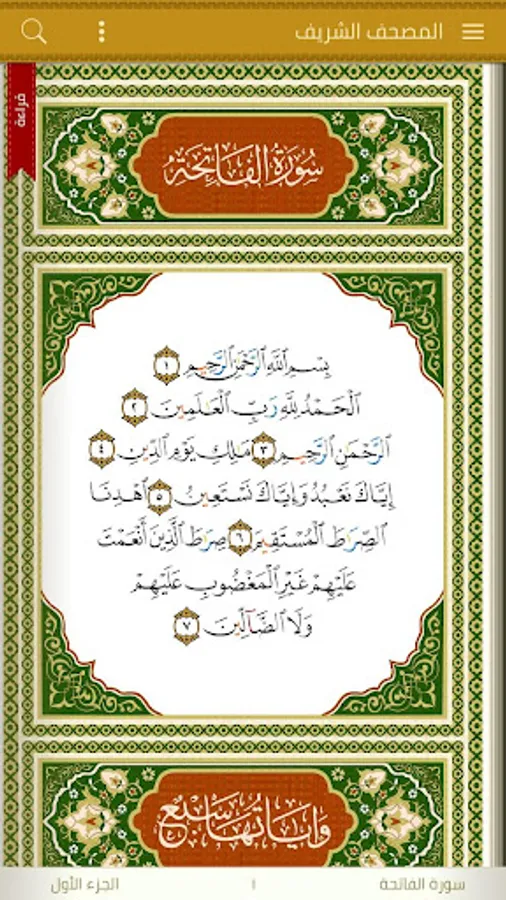 المصحف الشريف
قراءة
سُورَةُ الفَاتِحَةِ
بِسْمِ ٱللَّهِ ٱلرَّحْمَٰنِ ٱلرَّحِيمِ ١
ٱلْحَمْدُ لِلَّهِ رَبِّ ٱلْعَٰلَمِينَ ٢
ٱلرَّحْمَٰنِ ٱلرَّحِيمِ ٣ مَٰلِكِ يَوْمِ ٱلدِّينِ ٤
إِيَّاكَ نَعْبُدُ وَإِيَّاكَ نَسْتَعِينُ ٥ ٱهْدِنَا
ٱلصِّرَٰطَ ٱلْمُسْتَقِيمَ ٦ صِرَٰطَ ٱلَّذِينَ أَنْعَمْتَ
عَلَيْهِمْ غَيْرِ ٱلْمَغْضُوبِ عَلَيْهِمْ
وَلَا ٱلضَّآلِّينَ ٧
وَآيَاتُهَا سَبْعٌ
سورة الفاتحة
١
الجزء الأول